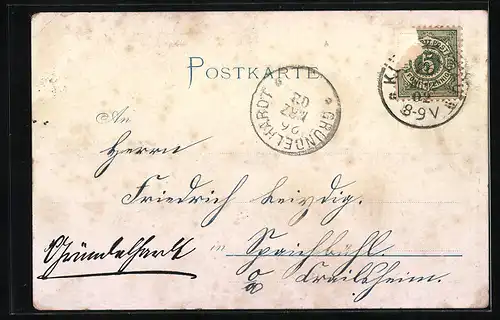 POSTKARTE
GRÜNDELHARDT
26
MRZ
02
5
02
8-9V
An
Herrn
Friedrich Leipzig.
Gründelhardt in Spaichbühl.
Crailsheim.